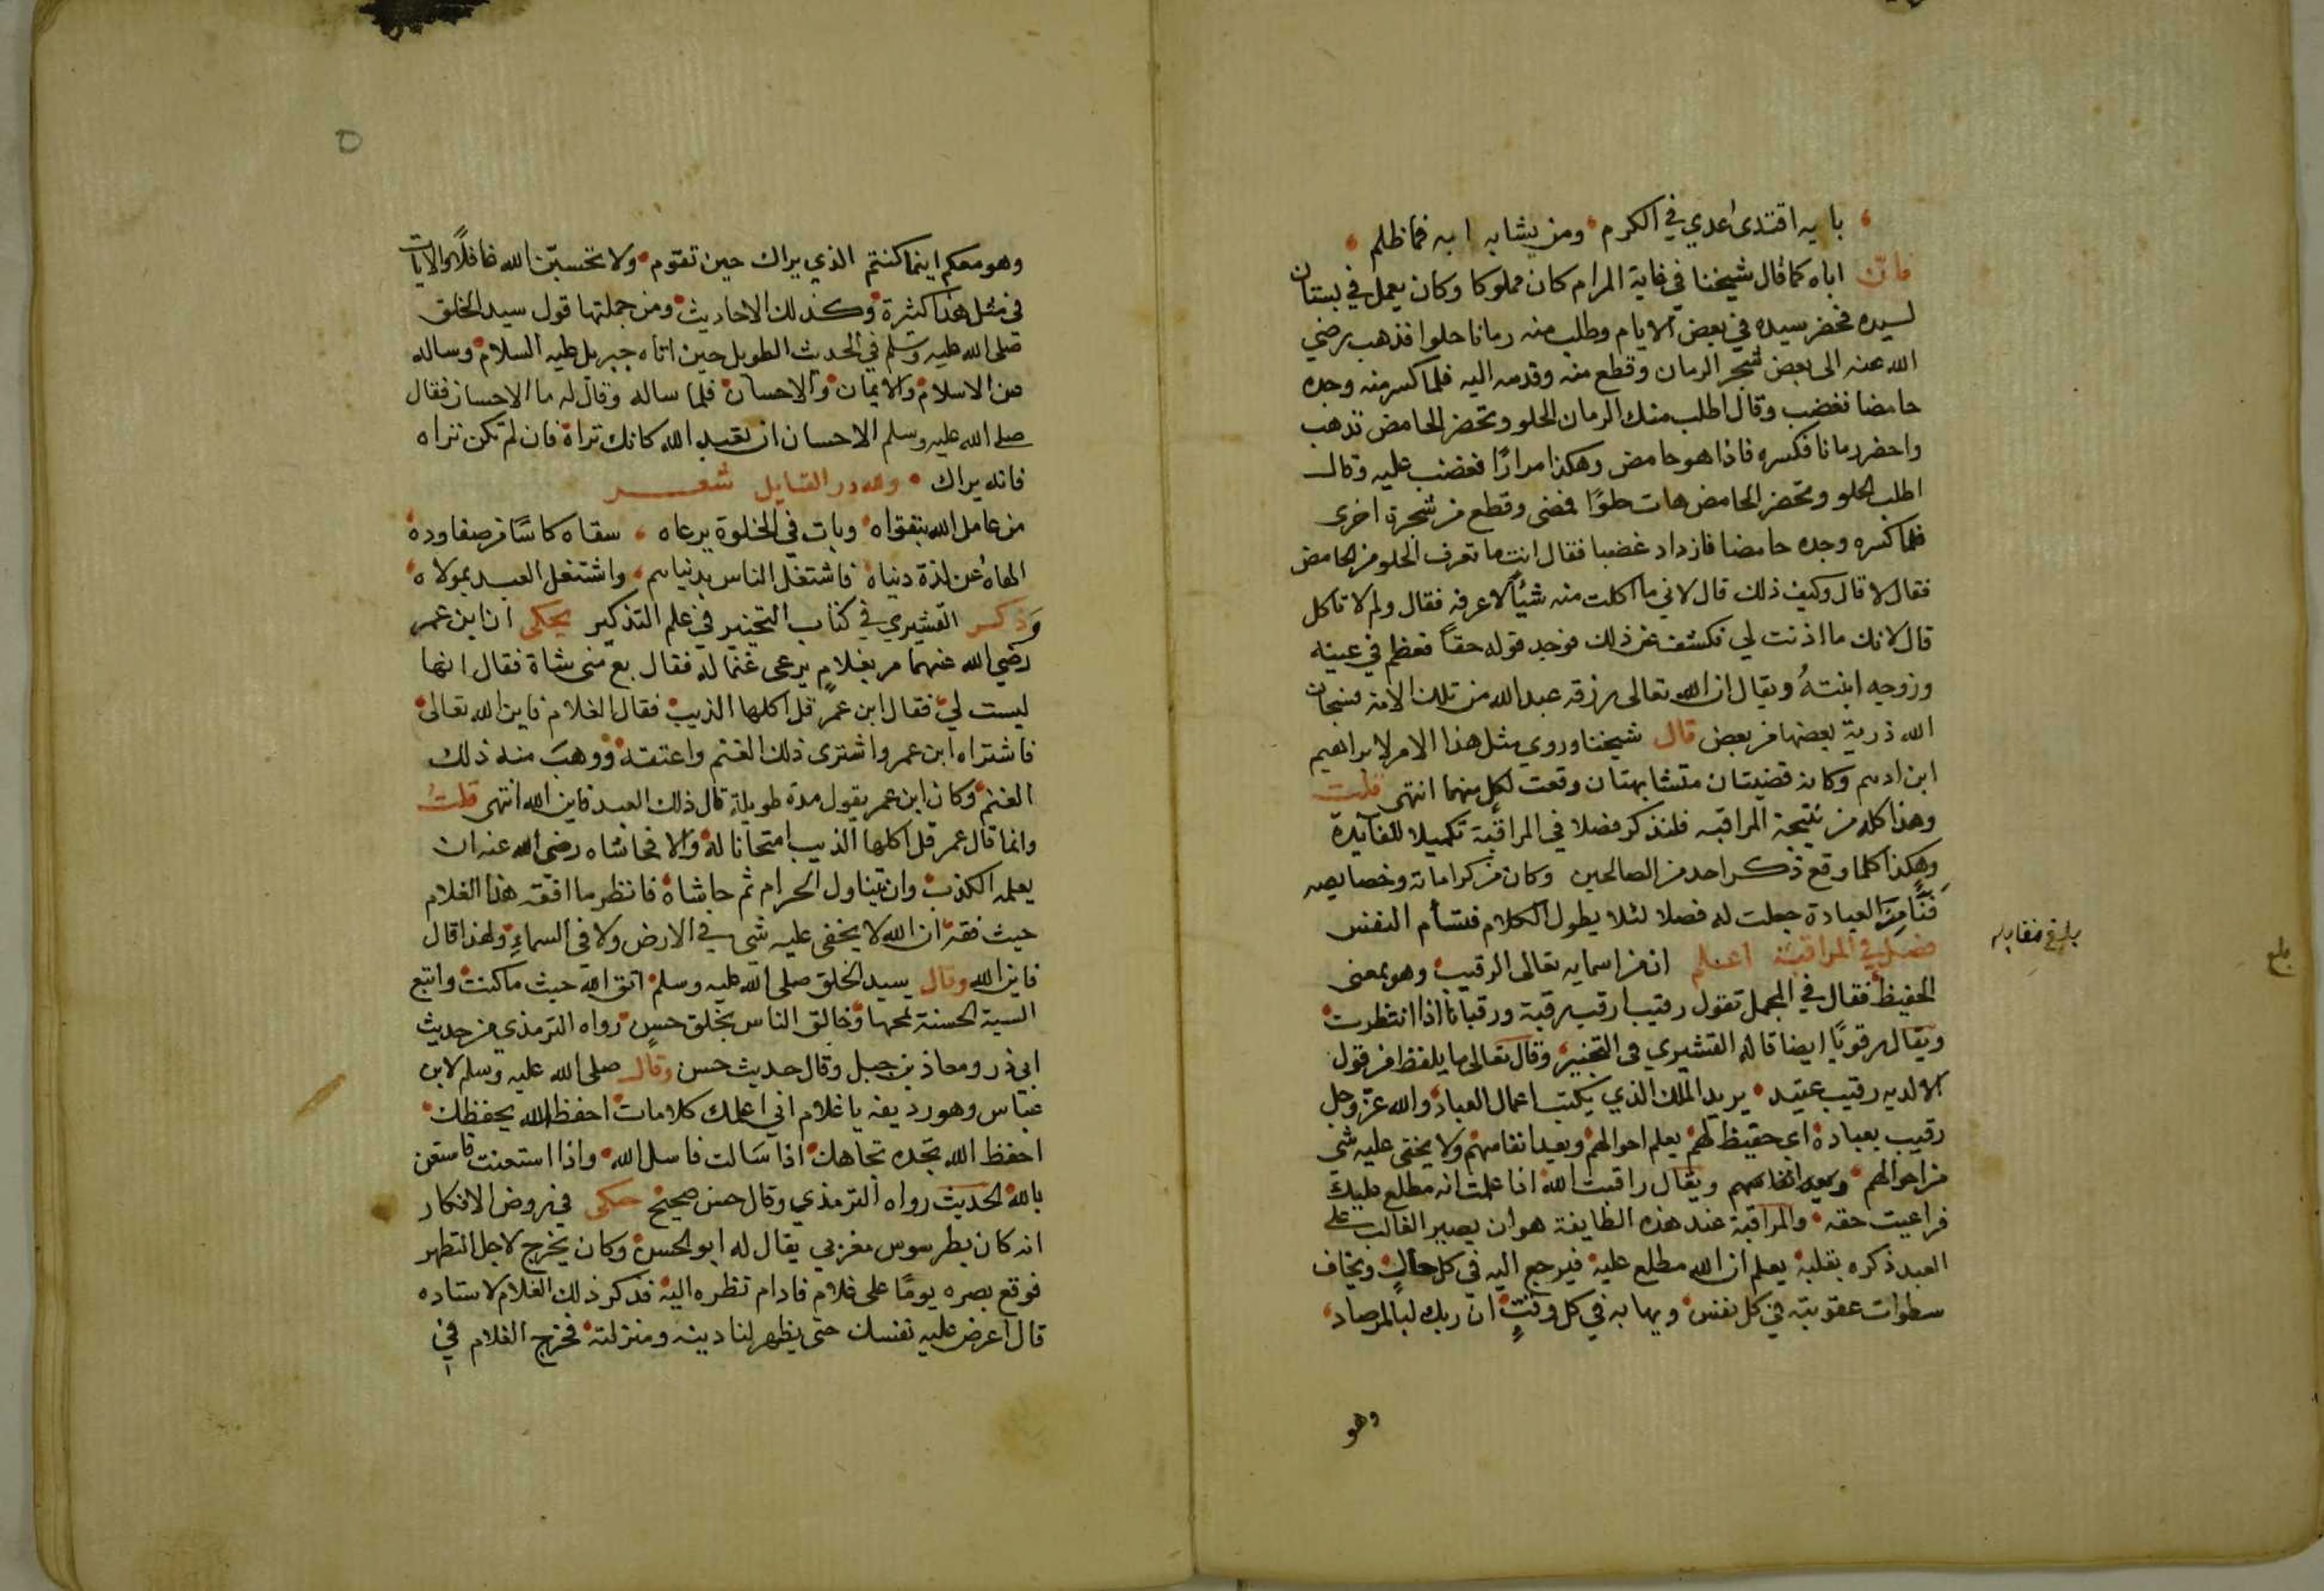 بابه اقتدى عدي في الكرم ومن يشابه ابه فما ظلم
فان اباه كما قال شيخنا في غاية المرام كان مملوكا وكان يعمل في بستان
لسيده فحضر سيده في بعض الايام وطلب منه رمانا حلوا فذهب رضي
الله عنه الى بعض شجر الرمان وقطع منه وقدمه اليه فلما كسر منه وجده
حامضا فغضب وقال اطلب منك الرمان الحلو وتحضر الحامض فذهب
واحضر رمانا فكسره فاذا هو حامض وهكذا مرارا فغضب عليه وقال
اطلب الحلو وتحضر الحامض هات حلوًا فمضى وقطع من شجرة اخرى
فلما كسره وجده حامضا فازداد غضبا فقال انت ما تعرف الحلو من الحامض
فقال لا قال وكيف ذلك قال لاني ما اكلت منه شيًا لاعرفه فقال ولم لا تاكل
قال لانك ما اذنت لي فكشف عن ذلك فوجد قوله حقًا فعظم في عينه
وزوجه ابنتهُ ويقال ان الله تعالى رزقه عبد الله من تلك الامة فسبحان
الله ذرية بعضها من بعض قال شيخنا وروي مثل هذا الامر لابراهيم
ابن ادهم وكانه قضيتان متشابهتان وقعت لكلٍ منهما انتهى قلت
وهذا كله من نتيجة المراقبه فلنذكر فصلا في المراقبة تكميلا للفايدة
وهكذا كلما وقع ذكر احد من الصالحين وكان من كراماته وخصايصه
فنًّا مِنَ العبادة جعلت له فصلا لئلا يطول الكلام فتسأم النفس
فصل في المراقبة اعلم ان من اسمايه تعالى الرقيب وهو بمعنى
بلغ مقابله
بلغ
الحفيظ فقال في المجمل تقول رقيب ارقب رقبة ورقبانا اذا انتظرت
ويقال رقوبًا ايضا قاله القشيري في التحبير وقال تعالى ما يلفظ من قول
الا لديه رقيب عتيد يريد الملك الذي يكتب اعمال العباد والله عز وجل
رقيب بعباده اي حفيظ لهم يعلم احوالهم ويعد انفاسهم ولا يخفى عليه شي
من احوالهم ويعد انفاسهم ويقال راقبت الله اذا علمت انه مطلع عليك
فراعيت حقه والمراقبة عند هذه الطايفة هو ان يصير الغالب على
العبد ذكره بقلبه يعلم ان الله مطلع عليه فيرجع اليه في كل حالٍ ويخاف
سطوات عقوبته في كل نفس ويهابه في كل وقتٍ ان ربك لبالمرصاد
وهو
٥
وهو معكم اينما كنتم الذي يراك حين تقوم ولا تحسبن الله غافلًا والايات
في مثل هذا كثيرة وكذلك الاحاديث ومن جملتها قول سيد الخلق
صلى الله عليه وسلم في الحدث الطويل حين اتاه جبريل عليه السلام وساله
عن الاسلام والايمان والاحسان فلما ساله وقال له ما الاحسان فقال
صلى الله عليه وسلم الاحسان ان تعبد الله كانك تراه فان لم تكن تراه
فانه يراك ولله در القايل شعر
من عامل الله بتقواه وبات في الخلوة يرعاه سقاه كاسًا من صفا وده
الهاهُ عن لذة دنياه فاشتغل الناس بدنياهم واشتغل العبد بمولاه
وَذكر القشيري في كتاب التحبير في علم التذكير يحكى ان ابن عمر
رضي الله عنهما مر بغلامٍ يرعى غنما له فقال بع مني شاة فقال انها
ليست لي فقال ابن عمر قل اكلها الذيب فقال الغلام فاين الله تعالى
فاشتراه ابن عمر واشترى ذلك الغنم واعتقه ووهبَ منه ذلك
الغنم وكان ابن عمر يقول مدة طويلة قال ذلك العبد فاين الله انتهى قلتُ
وانما قال عمر قل اكلها الذيب امتحانا له والا فحاشاه رضي الله عنه ان
يعلمه الكذب وان يتناول الحرام ثم حاشاه فانظر ما افقه هذا الغلام
حيث فقه ان الله لا يخفى عليه شي في الارض ولا في السماءِ ولهذا قال
فاين الله وقال سيد الخلق صلى الله عليه وسلم اتق الله حيث ما كنت واتبع
السية الحسنة تمحها وخالق الناس بخلق حسنٍ رواه الترمذي من حديث
ابي ذر ومعاذ بن جبل وقال حديث حسن وقال صلى الله عليه وسلم لابن
عباس وهو رديفه يا غلام اني اعلمك كلامات احفظ الله يحفظك
احفظ الله تجده تجاهك اذا سَالت فاسل الله واذا استعنت فاستعن
بالله الحديث رواه الترمذي وقال حسن صحيح حكى في روض الافكار
انه كان بطرسوس مغربي يقال له ابو الحسن وكان يخرج لاجل التطهر
فوقع بصره يومًا على غلام فادام نظره اليه فذكر ذلك الغلام لاستاده
قال اعرض عليه نفسك حتى يظهر لنا دينه ومنزلته فخرج الغلام في